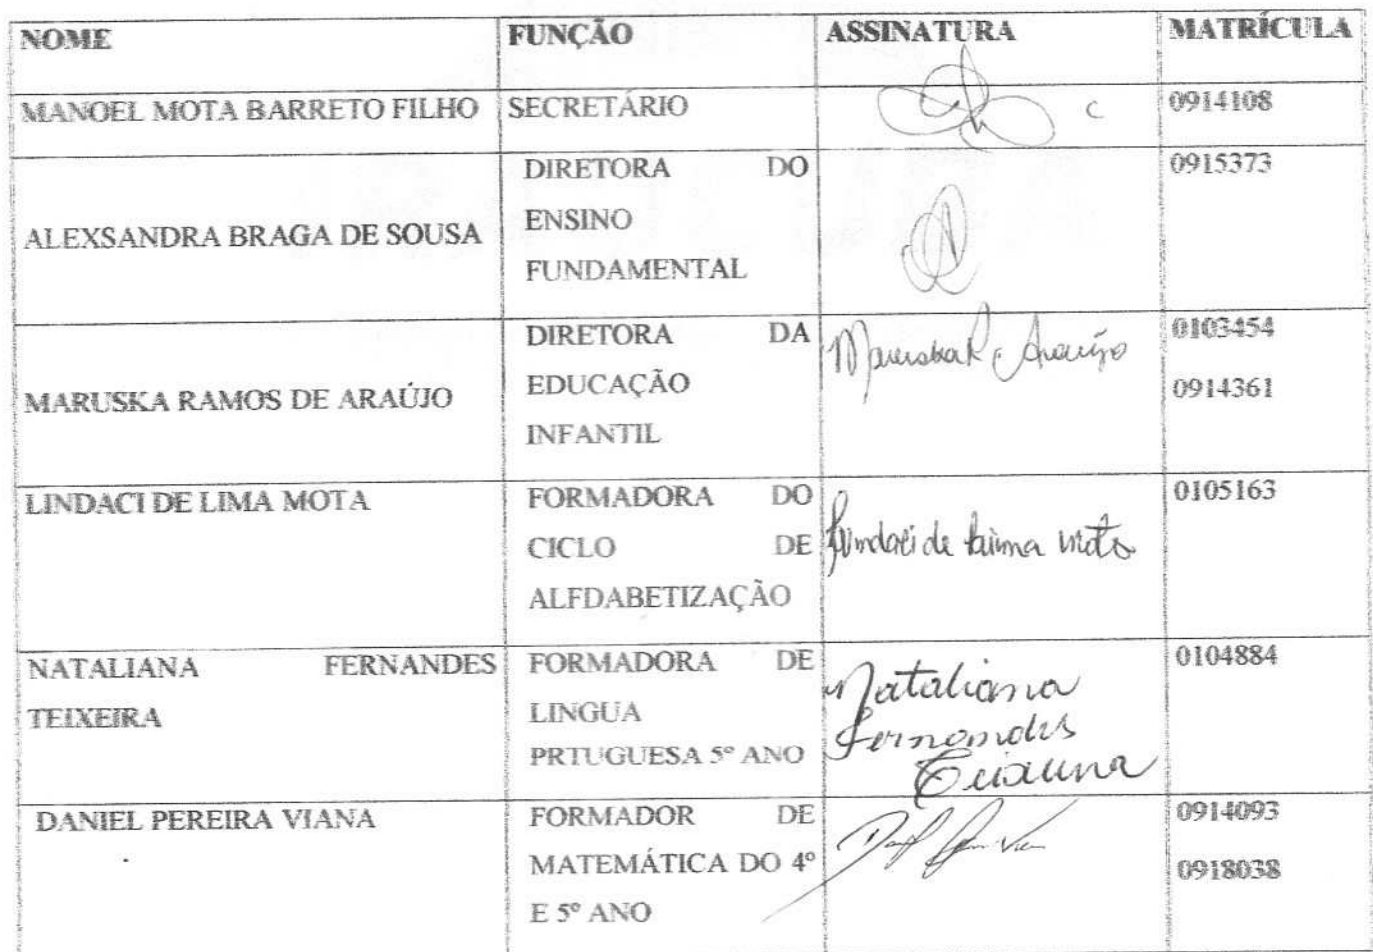 NOME FUNÇÃO ASSINATURA MATRÍCULA
MANOEL MOTA BARRETO FILHO SECRETÁRIO 0914108
ALEXSANDRA BRAGA DE SOUSA
DIRETORA DO
ENSINO
FUNDAMENTAL
0915373
MARUSKA RAMOS DE ARAÚJO
DIRETORA DA
EDUCAÇÃO
INFANTIL
Maruska R. Araújo
0103454
0914361
LINDACI DE LIMA MOTA
FORMADORA DO
CICLO DE
ALFDABETIZAÇÃO
Lindaci de Lima Mota
0105163
NATALIANA FERNANDES
TEIXEIRA
FORMADORA DE
LINGUA
PRTUGUESA 5º ANO
Nataliana
Fernandes
Teixeira
0104884
DANIEL PEREIRA VIANA
FORMADOR DE
MATEMÁTICA DO 4º
E 5º ANO
0914093
0918038